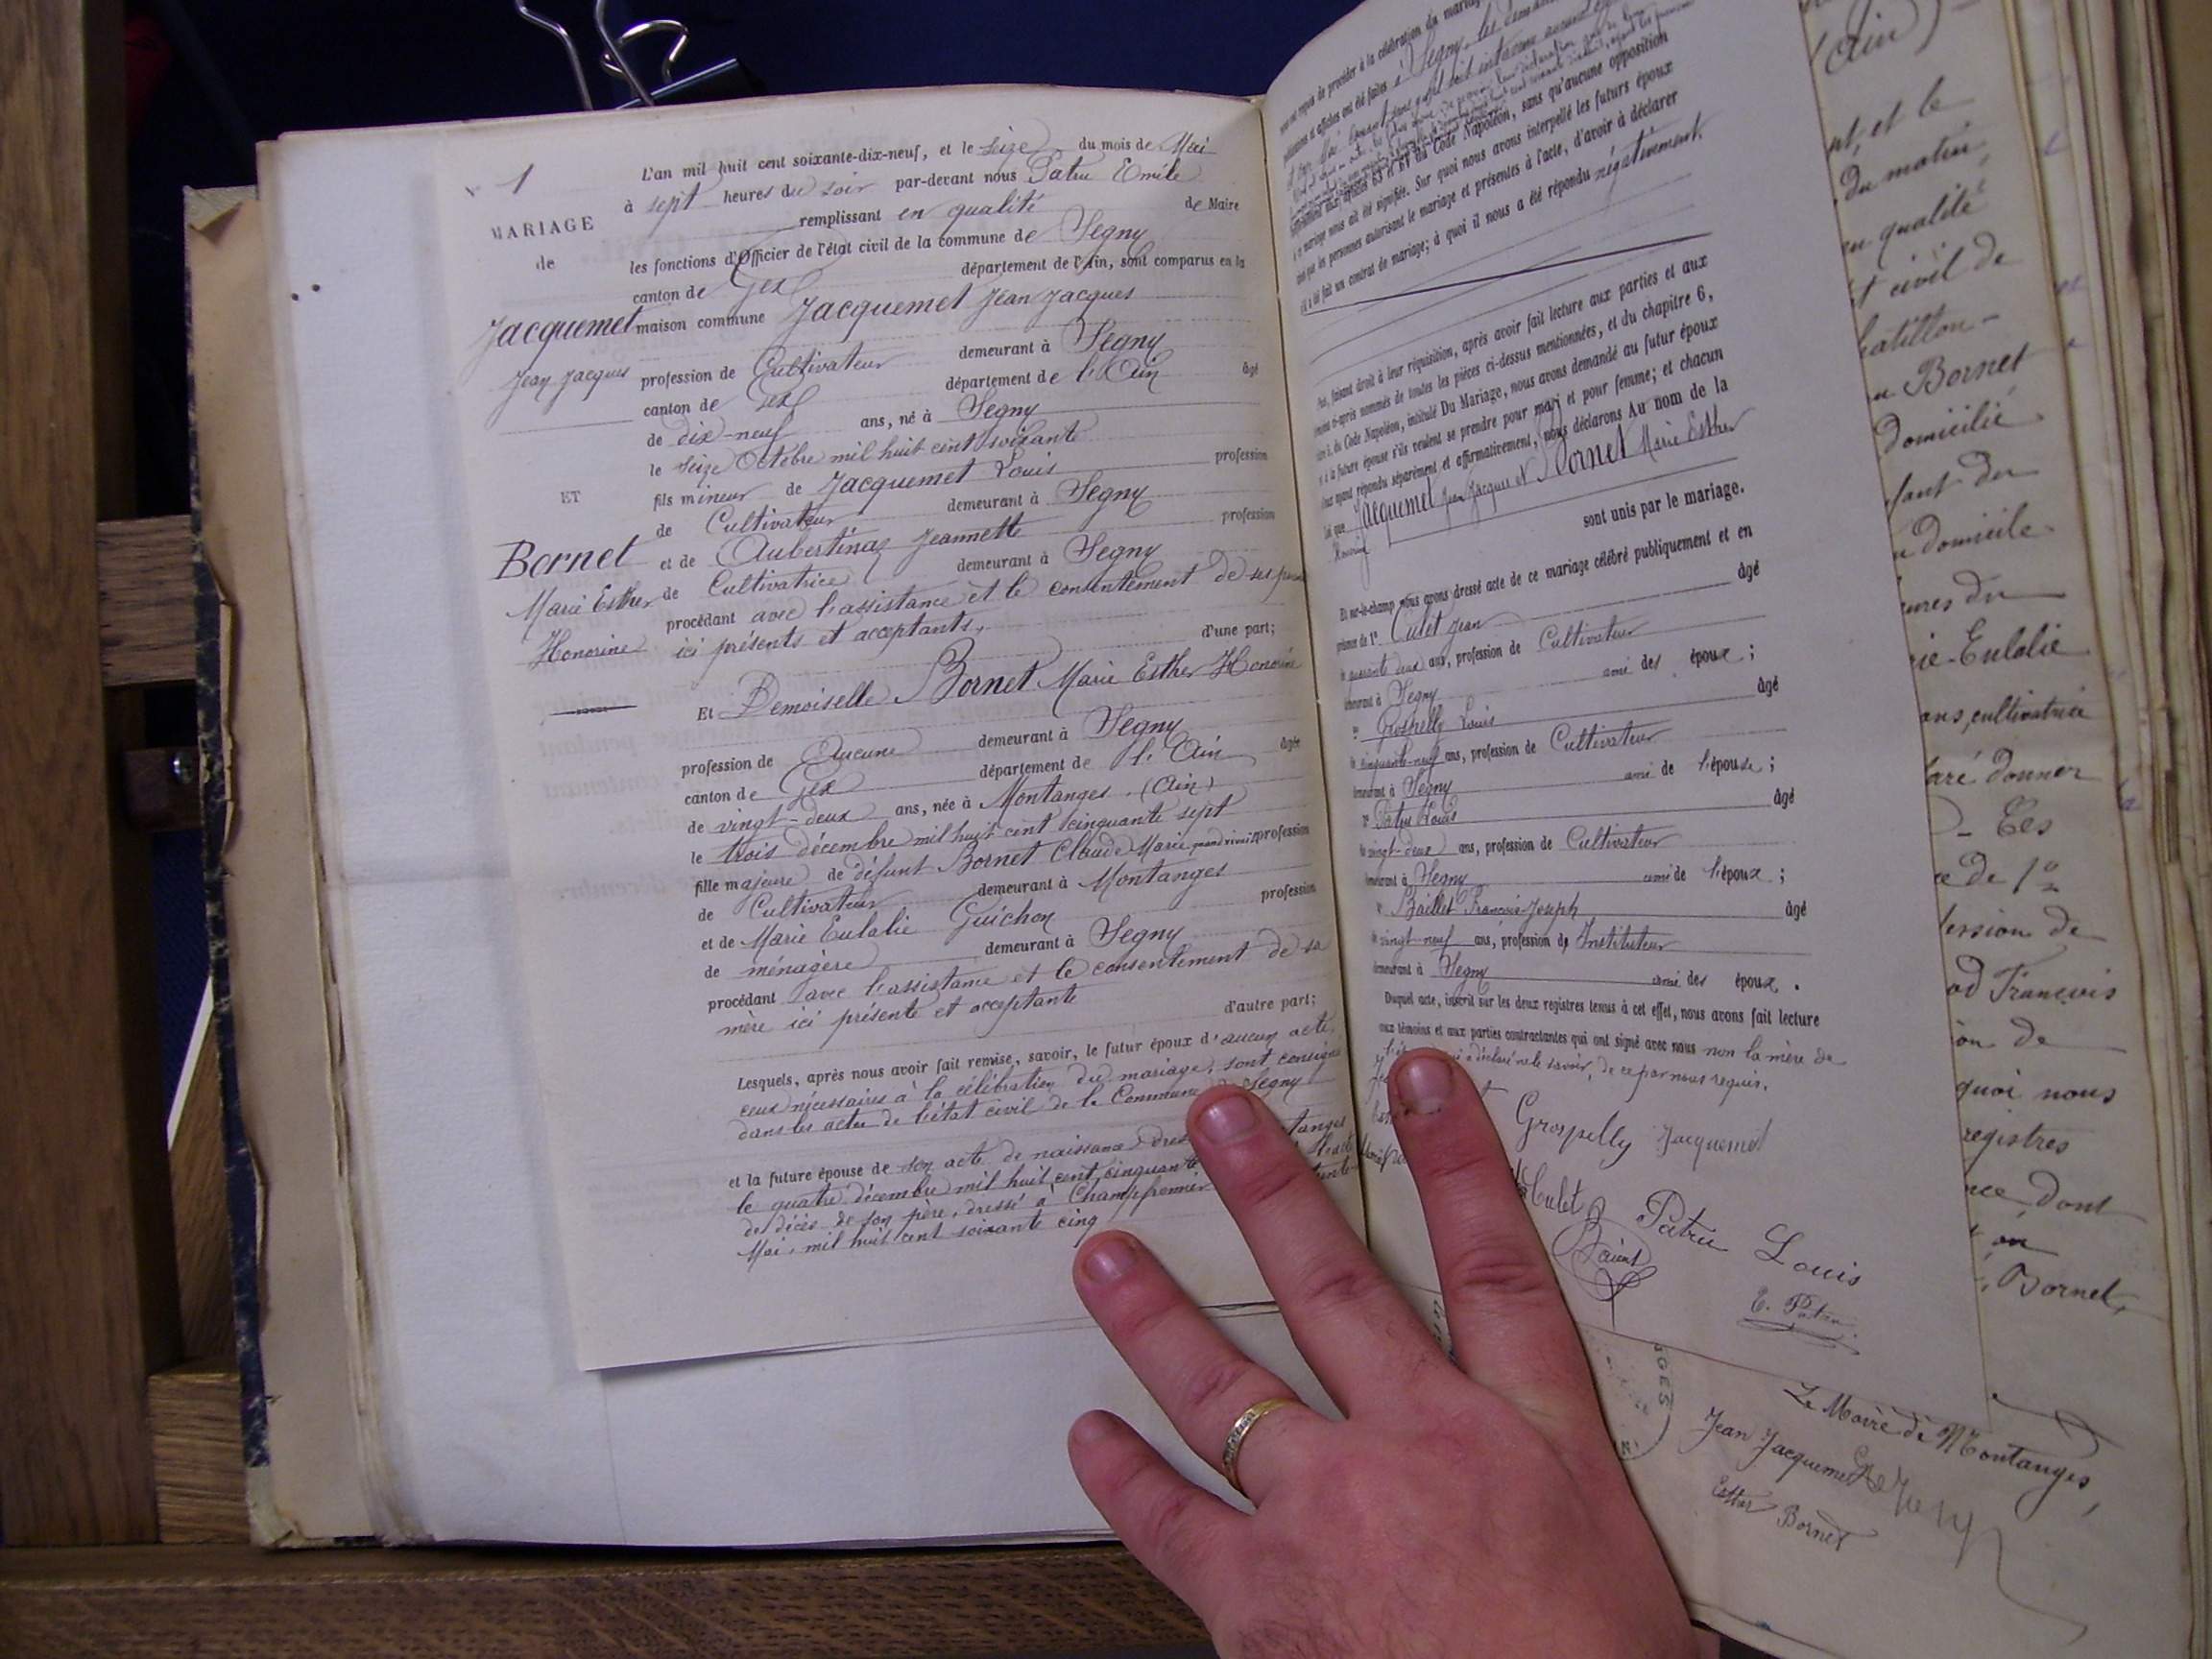 N° 1
MARIAGE
de
Jacquemet
Jean Jacques
ET
Bornet
Marie Esther
Honorine
L'an mil huit cent soixante-dix-neuf, et le seize du mois de Mai
à sept heures du soir par-devant nous Patru Emile
remplissant en qualité de Maire
les fonctions d'Officier de l'état civil de la commune de Segny
canton de Gex département de l'Ain, sont comparus en la
maison commune Jacquemet Jean Jacques
profession de Cultivateur demeurant à Segny
canton de Gex département de l'Ain âgé
de dix-neuf ans, né à Segny
le seize Octobre mil huit cent soixante
fils mineur de Jacquemet Louis profession
de Cultivateur demeurant à Segny
et de Aubertinaz Jeannette profession
de Cultivatrice demeurant à Segny
procédant avec l'assistance et le consentement de ses
ici présents et acceptants, d'une part;
Et Demoiselle Bornet Marie Esther Honorine
profession de Aucune demeurant à Segny
canton de Gex département de l'Ain âgée
de vingt-deux ans, née à Montanges (Ain)
le trois décembre mil huit cent cinquante sept
fille majeure de défunt Bornet Claude Marie profession
de Cultivateur demeurant à Montanges
et de Marie Eulalie Guichon profession
de ménagère demeurant à Segny
procédant avec l'assistance et le consentement de sa
mère ici présente et acceptante d'autre part;
Lesquels, après nous avoir fait remise, savoir, le futur époux d'aucun acte,
ceux nécessaires à la célébration du mariage, sont consignés
dans les actes de l'état civil de la Commune Segny
et la future épouse de son acte de naissance
le quatre décembre mil huit cent cinquante
de décès de son père, dressé à Champfromier
Mai, mil huit cent soixante cinq
requis de procéder à la célébration du
publications et affiches ont été faites à Segny, les
articles 63 et du Code Napoléon, sans qu'aucune opposition
mariage nous ait été signifiée. Sur quoi nous avons interpellé les futurs époux
que les personnes autorisant le mariage et présentes à l'acte, d'avoir à déclarer
s'il a été fait un contrat de mariage; à quoi il nous a été répondu négativement.
faisant droit à leur réquisition, après avoir fait lecture aux parties et aux
ci-après nommés de toutes les pièces ci-dessus mentionnées, et du chapitre 6,
du Code Napoléon, intitulé Du Mariage, nous avons demandé au futur époux
et à la future épouse s'ils veulent se prendre pour mari et pour femme; et chacun
ayant répondu séparément et affirmativement, nous déclarons Au nom de la
loi que Jacquemet Jean Jacques et Bornet Marie Esther
Honorine sont unis par le mariage.
Et sur-le-champ nous avons dressé acte de ce mariage célébré publiquement et en
présence de 1° Culet Jean âgé
de quarante deux ans, profession de Cultivateur
demeurant à Segny ami des époux;
2° Grospelly Louis âgé
de cinquante-neuf ans, profession de Cultivateur
demeurant à Segny ami de l'épouse;
3° Patru Louis âgé
de vingt-deux ans, profession de Cultivateur
demeurant à Segny ami de l'époux;
Baillet François Joseph âgé
de vingt neuf ans, profession de Instituteur
demeurant à Segny ami des époux.
Duquel acte, inscrit sur les deux registres tenus à cet effet, nous avons fait lecture
aux témoins et aux parties contractantes qui ont signé avec nous non la mère de
a déclaré ne le savoir, de ce par nous requis.
Grospelly Jacquemet
Culet
Patru Louis
E. Patru
(Ain)
nt, et le
du matin,
en qualité
t civil de
hatillon-
u Bornet
Domicilié
fant du
u domicile
eures du
rie-Eulalie
ans, cultivatrice
laré donner
Les
ce de 1°
fession de
od François
ion de
quoi nous
registres
nce dont
Bornet,
Le Maire de Montanges,
Jean Jacquemet
Esther Bornet